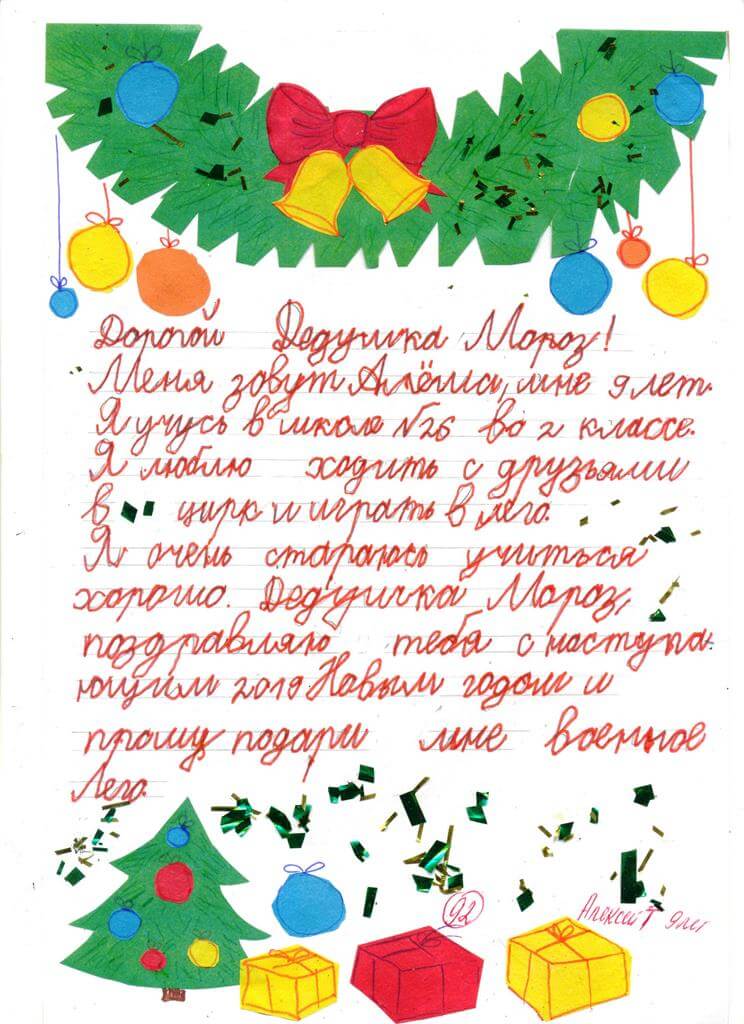 Дорогой Дедушка Мороз!
Меня зовут Алёша, мне 9 лет.
Я учусь в школе №26 во 2 классе.
Я люблю ходить с друзьями
в цирк и играть в лего.
Я очень стараюсь учиться
хорошо. Дедушка Мороз,
поздравляю тебя с наступа-
ющим 2019 Новым годом и
прошу подари мне военное
Лего.
92
Алексей Т 9 лет